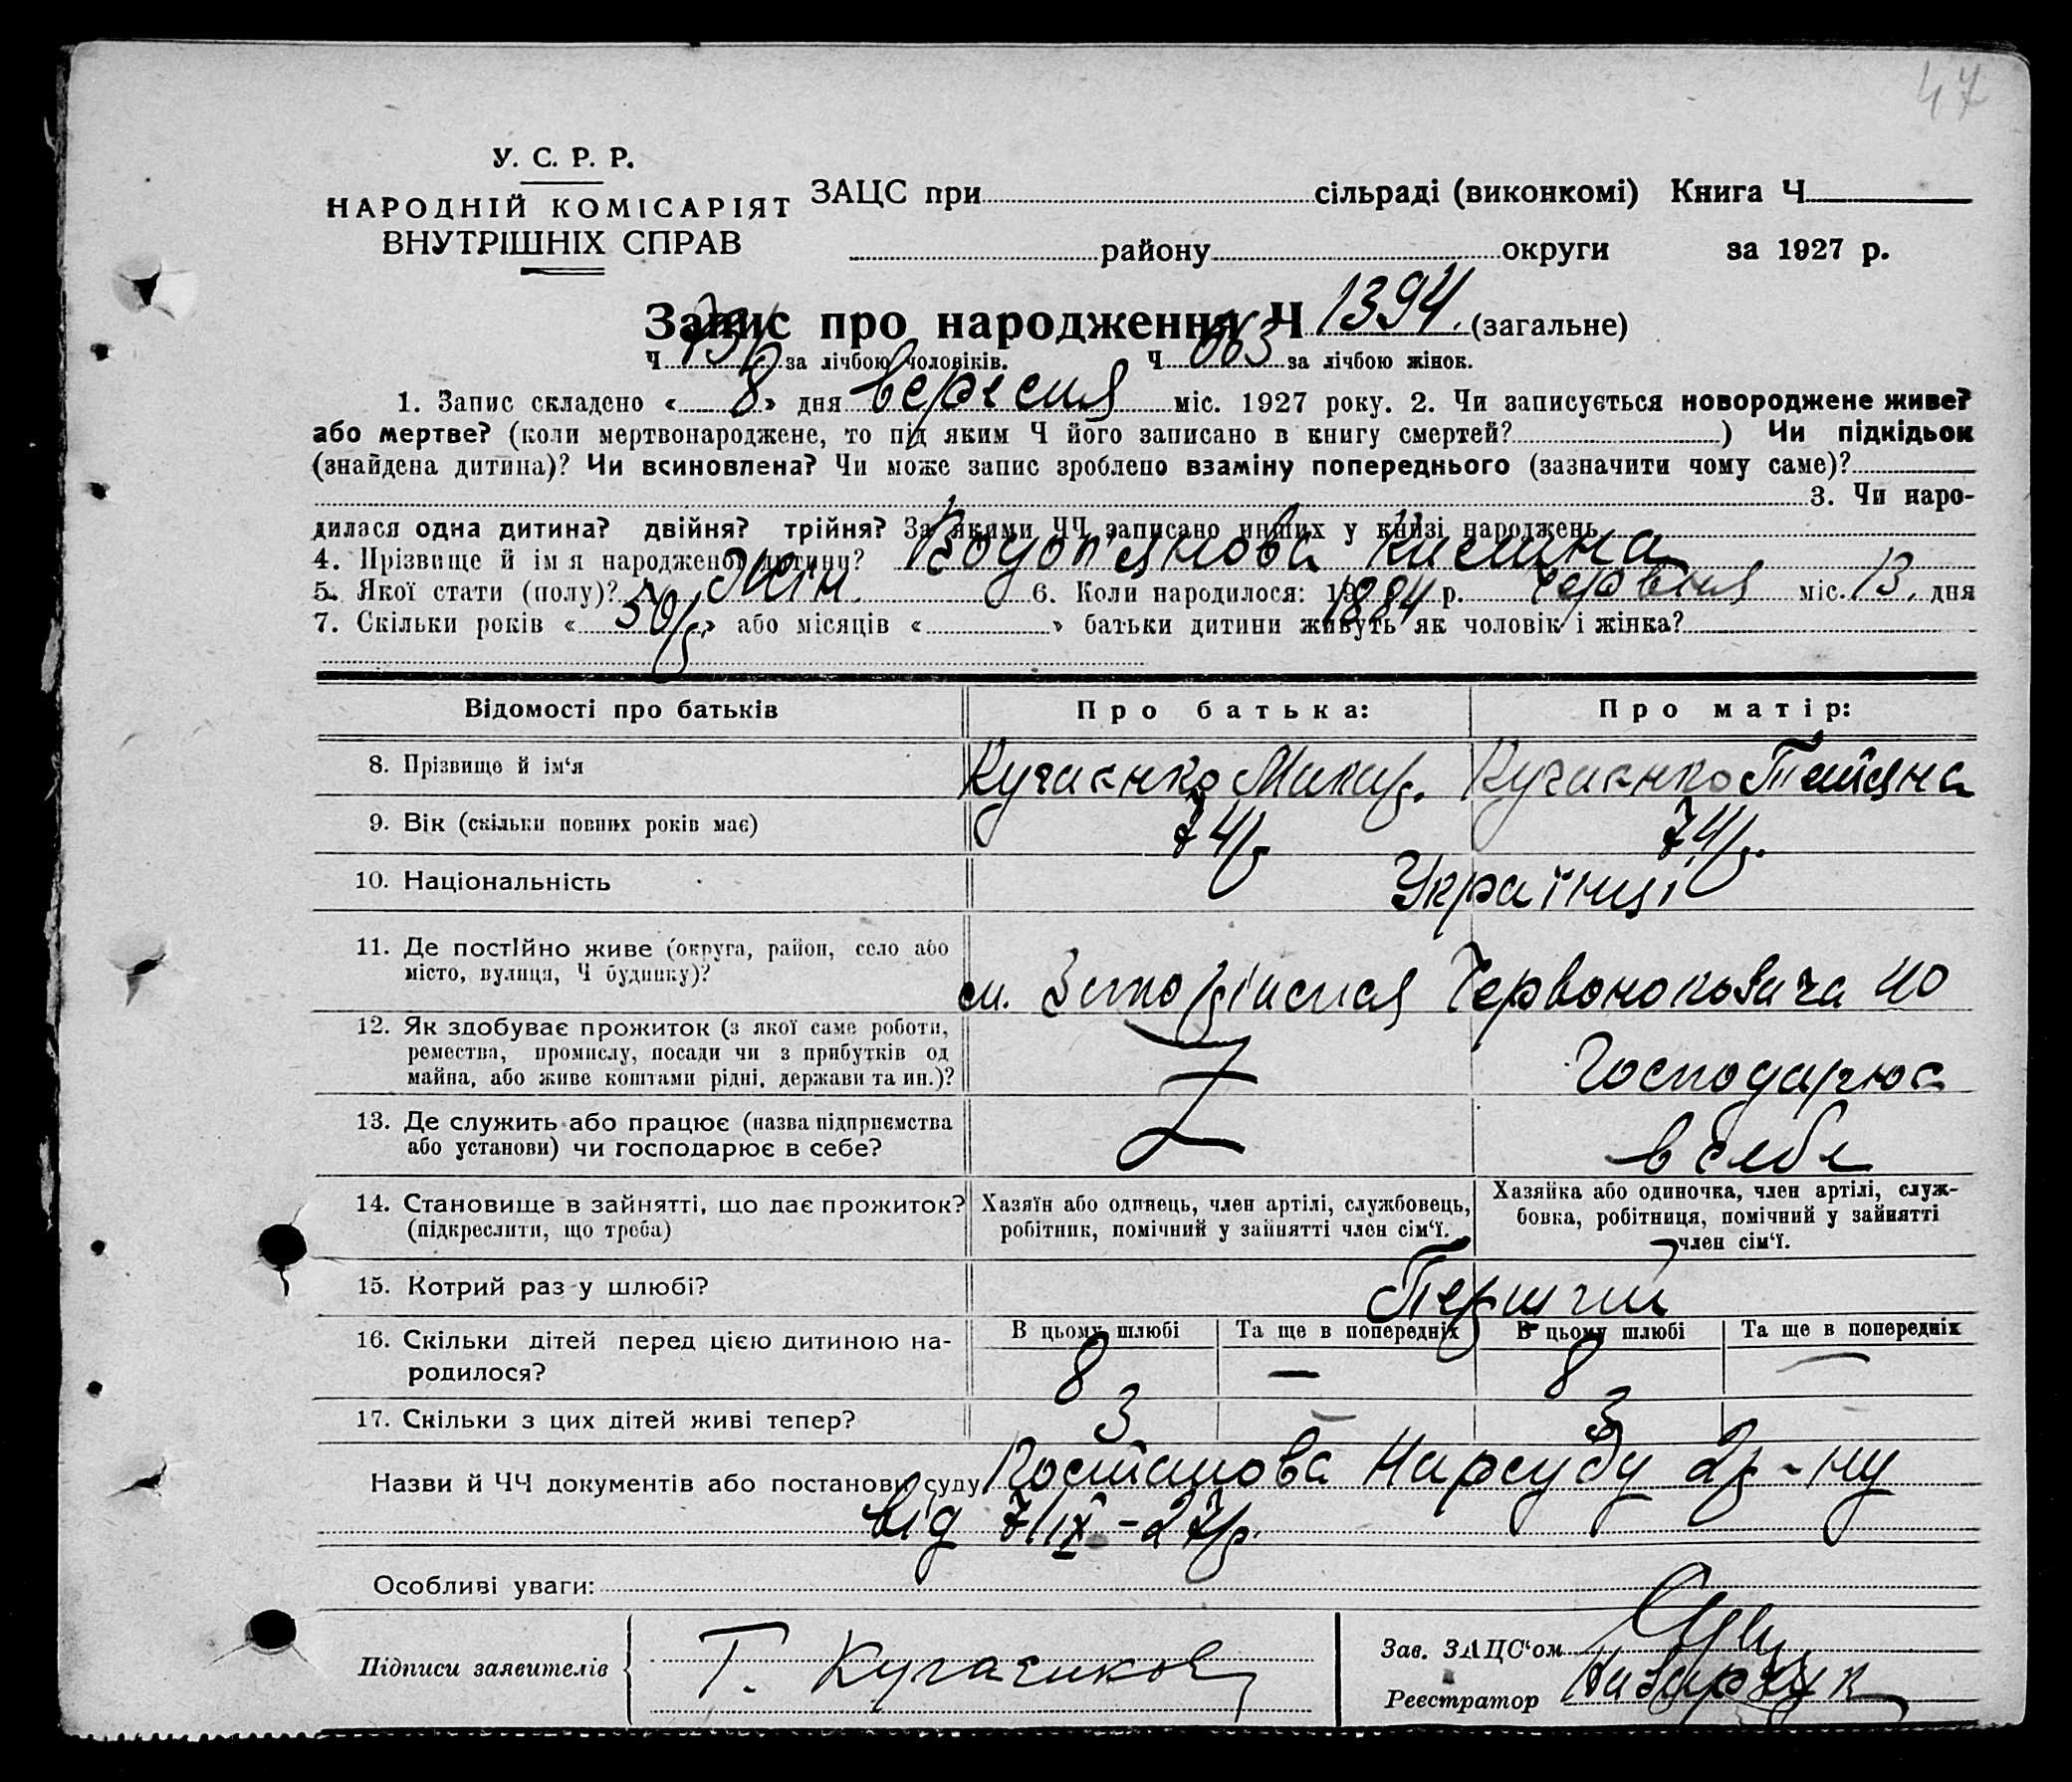 47
У. С. Р. Р.
НАРОДНІЙ КОМІСАРІЯТ
ВНУТРІШНІХ СПРАВ
ЗАЦС при сільраді (виконкомі) Книга Ч
району округи за 1927 р.
Запис про народження Ч 1394. (загальне)
Ч за лічбою чоловіків. Ч 663 за лічбою жінок.
1. Запис складено « 8 » дня вересня міс. 1927 року. 2. Чи записується новороджене живе?
або мертве? (коли мертвонароджене, то під яким Ч його записано в книгу смертей? ) Чи підкідьок
(знайдена дитина)? Чи всиновлена? Чи може запис зроблено взаміну попереднього (зазначити чому саме)?
3. Чи наро-
дилася одна дитина? двійня? трійня? За якими ЧЧ записано инших у книзі народжень
4. Прізвище й ім я народженої дитини? Водоп'янова
5. Якої стати (полу)? Жін. 6. Коли народилося: 19 1884 р. червня міс. 13. дня
7. Скільки років « 50 р. » або місяців « » батьки дитини живуть як чоловік і жінка?
Відомості про батьків Про батька: Про матір:
8. Прізвище й ім‘я Кучаєнко Макар. Кучаєнко Тетяна
9. Вік (скільки повних років має) 74 р 74 р.
10. Національність Українці
11. Де постійно живе (округа, район, село або
місто, вулиця, Ч будинку)? Червонокозача 40
12. Як здобуває прожиток (з якої саме роботи,
ремества, промислу, посади чи з прибутків од
майна, або живе коштами рідні, держави та ин.)? Господарює
13. Де служить або працює (назва підприємства
або установи) чи господарює в себе? в себе
14. Становище в зайнятті, що дає прожиток?
(підкреслити, що треба)
Хазяїн або одинець, член артілі, службовець,
робітник, помічний у зайнятті член сім‘ї.
Хазяйка або одиночка, член артілі, служ-
бовка, робітниця, помічний у зайнятті
член сім‘ї.
15. Котрий раз у шлюбі? Перший
16. Скільки дітей перед цією дитиною на-
родилося?
В цьому шлюбі Та ще в попередніх В цьому шлюбі Та ще в попередніх
8 — 8 —
17. Скільки з цих дітей живі тепер? 3 — 3
Назви й ЧЧ документів або постанови суду Постанова Нарсуду 2 р-ну
від 7/IX-27 р.
Особливі уваги:
Підписи заявителів Т. Кучаєнкова
Зав. ЗАЦС‘ом
Реєстратор